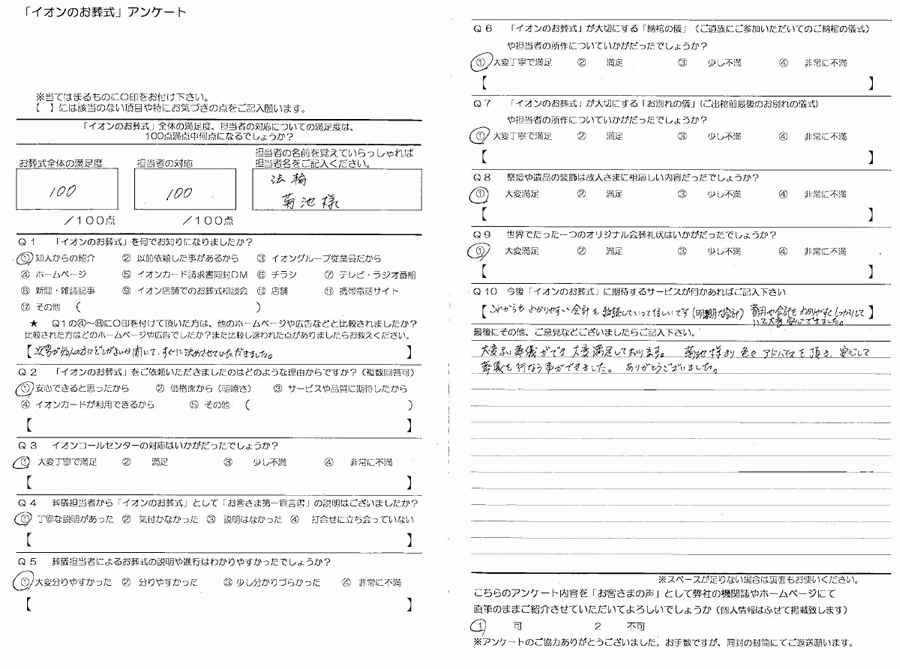 「イオンのお葬式」アンケート
※当てはまるものに○印をお付け下さい。
【 】には該当のない項目や特にお気づきの点をご記入願います。
「イオンのお葬式」全体の満足度、担当者の対応についての満足度は、
100点満点中何点になるでしょうか？
お葬式全体の満足度
担当者の対応
担当者の名前を覚えていらっしゃれば
担当者名をご記入ください。
100
100
法輪
菊池様
／100点
／100点
Q1 「イオンのお葬式」を何でお知りになりましたか？
① 知人からの紹介 ② 以前依頼した事があるから ③ イオングループ従業員だから
④ ホームページ ⑤ イオンカード請求書同封DM ⑥ チラシ ⑦ テレビ・ラジオ番組
⑧ 新聞・雑誌記事 ⑨ イオン店舗でのお葬式相談会 ⑩ 店舗 ⑪ 携帯電話サイト
⑫ その他 （ ）
★ Q1の④～⑫に○印を付けて頂いた方は、他のホームページや広告などと比較されましたか？
比較された方はどのホームページや広告でしたか？また比較し迷われた点がありましたらお教えください。
Q2 「イオンのお葬式」をご依頼いただきましたのはどのような理由からですか？（複数回答可）
① 安心できると思ったから ② 価格面から（明瞭さ） ③ サービスや品質に期待したから
④ イオンカードが利用できるから ⑤ その他 （ ）
【 】
Q3 イオンコールセンターの対応はいかがだったでしょうか？
① 大変丁寧で満足 ② 満足 ③ 少し不満 ④ 非常に不満
【 】
Q4 葬儀担当者から「イオンのお葬式」として「お客さま第一宣言書」の説明はございましたか？
① 丁寧な説明があった ② 気付かなかった ③ 説明はなかった ④ 打合せに立ち会っていない
【 】
Q5 葬儀担当者によるお葬式の説明や進行はわかりやすかったでしょうか？
① 大変分りやすかった ② 分りやすかった ③ 少し分かりづらかった ④ 非常に不満
【 】
Q6 「イオンのお葬式」が大切にする「納棺の儀」（ご遺族にご参加いただいてのご納棺の儀式）
や担当者の所作についていかがだったでしょうか？
① 大変丁寧で満足 ② 満足 ③ 少し不満 ④ 非常に不満
【 】
Q7 「イオンのお葬式」が大切にする「お別れの儀」（ご出棺前最後のお別れの儀式）
や担当者の所作についていかがだったでしょうか？
① 大変丁寧で満足 ② 満足 ③ 少し不満 ④ 非常に不満
【 】
Q8 祭壇や遺品の装飾は故人さまに相応しい内容だったでしょうか？
① 大変満足 ② 満足 ③ 少し不満 ④ 非常に不満
【 】
Q9 世界でたった一つのオリジナル会葬礼状はいかがだったでしょうか？
① 大変満足 ② 満足 ③ 少し不満 ④ 非常に不満
【 】
Q10 今後「イオンのお葬式」に期待するサービスが何かあればご記入下さい
【これからもわかりやすい会計を
最後にその他、ご意見などございましたらご記入下さい。
大変よい葬儀ができ大変満足しております。 菊池様より色々アドバイスを頂き、安心して
葬儀を行なう事ができました。 ありがとうございました。
※スペースが足りない場合は裏面もお使いください。
こちらのアンケート内容を「お客さまの声」として弊社の機関誌やホームページにて
直筆のままご紹介させていただいてよろしいでしょうか（個人情報はふせて掲載致します）
1 可 2 不可
※アンケートのご協力ありがとうございました。お手数ですが、同封の封筒にてご返送願います。